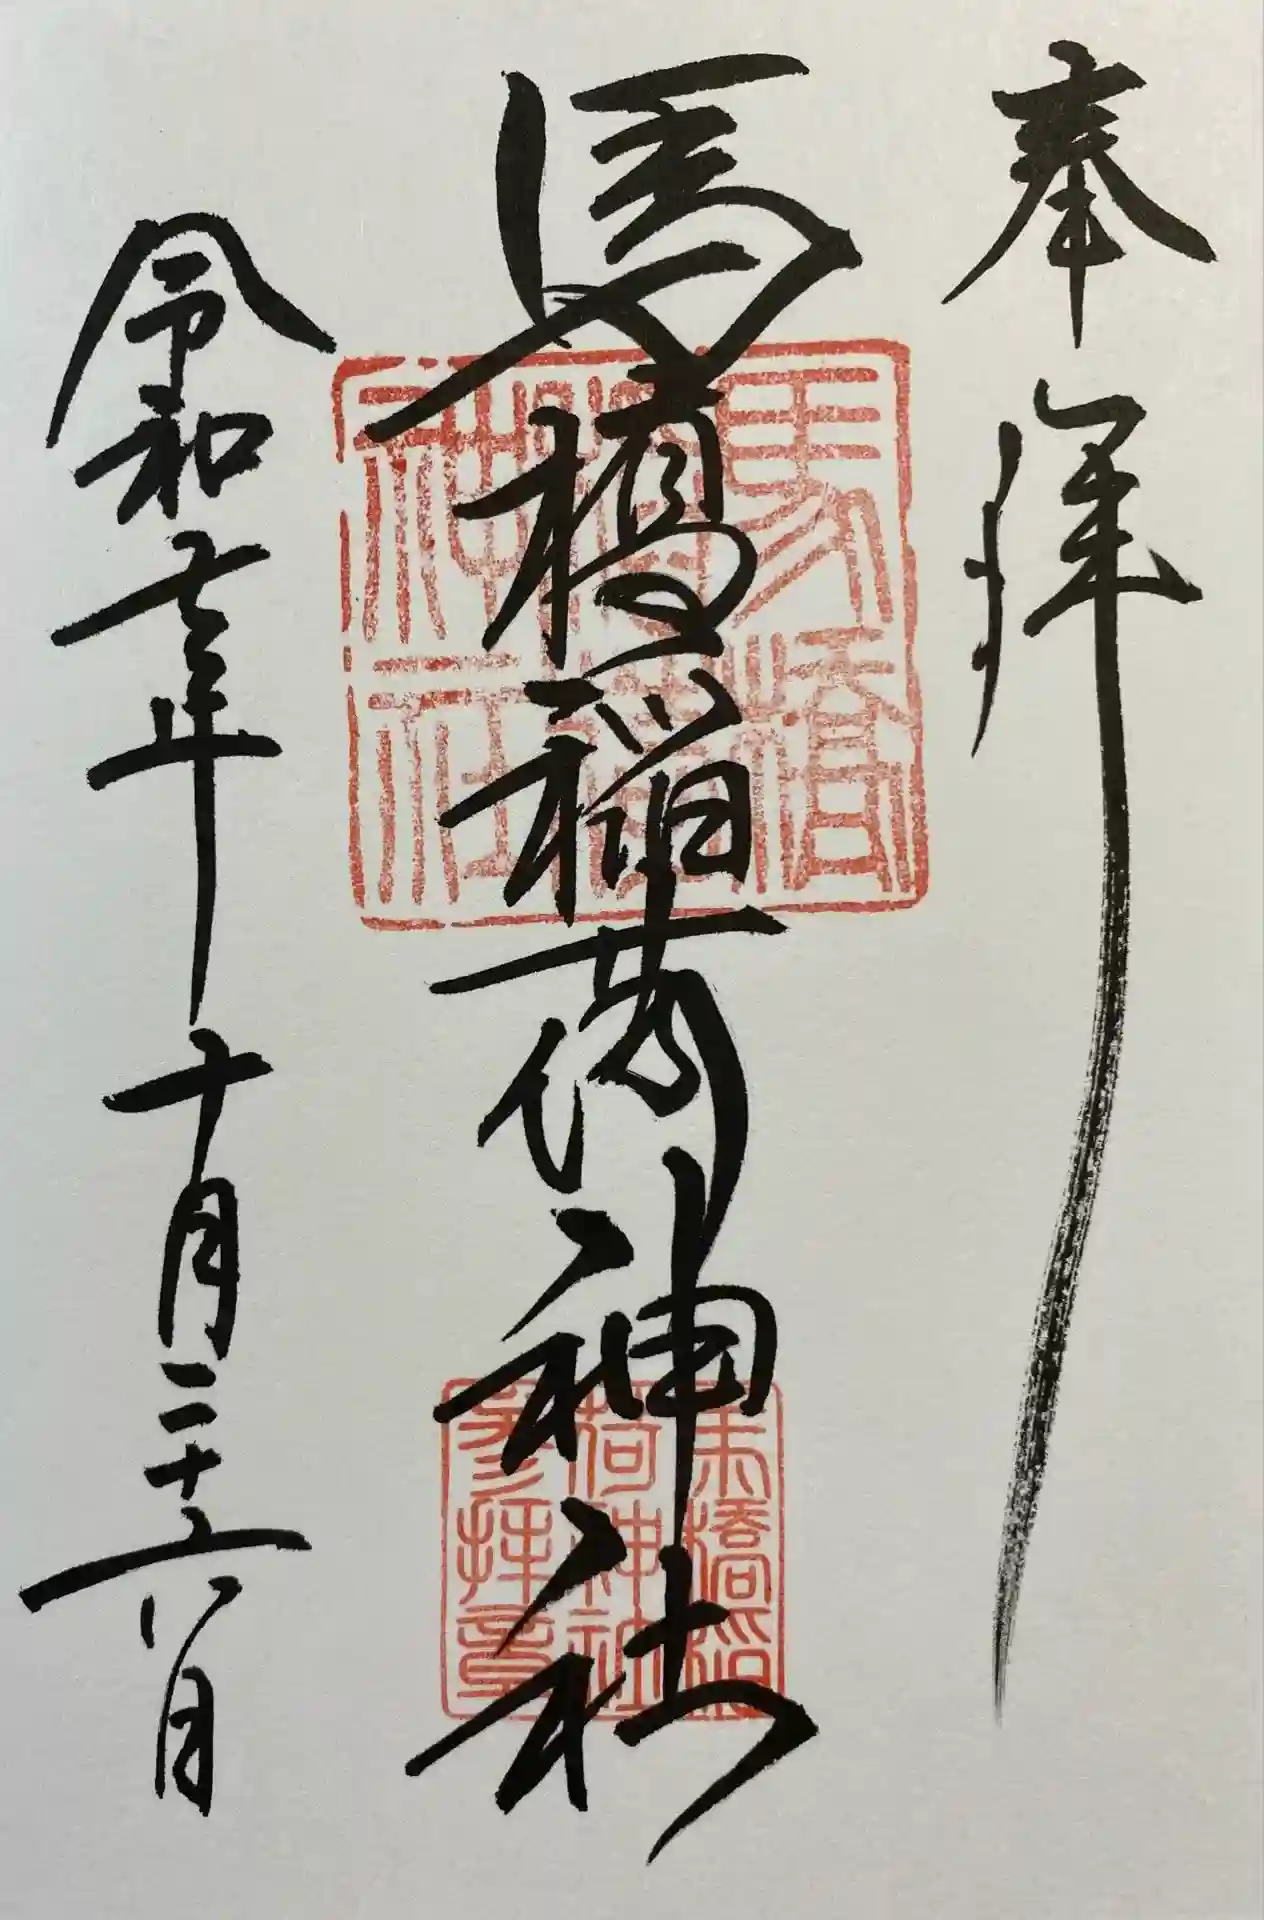 奉拝
馬橋稲荷神社
令和七年十月二十六日
馬橋稲荷神社
馬橋稲荷神社参拝